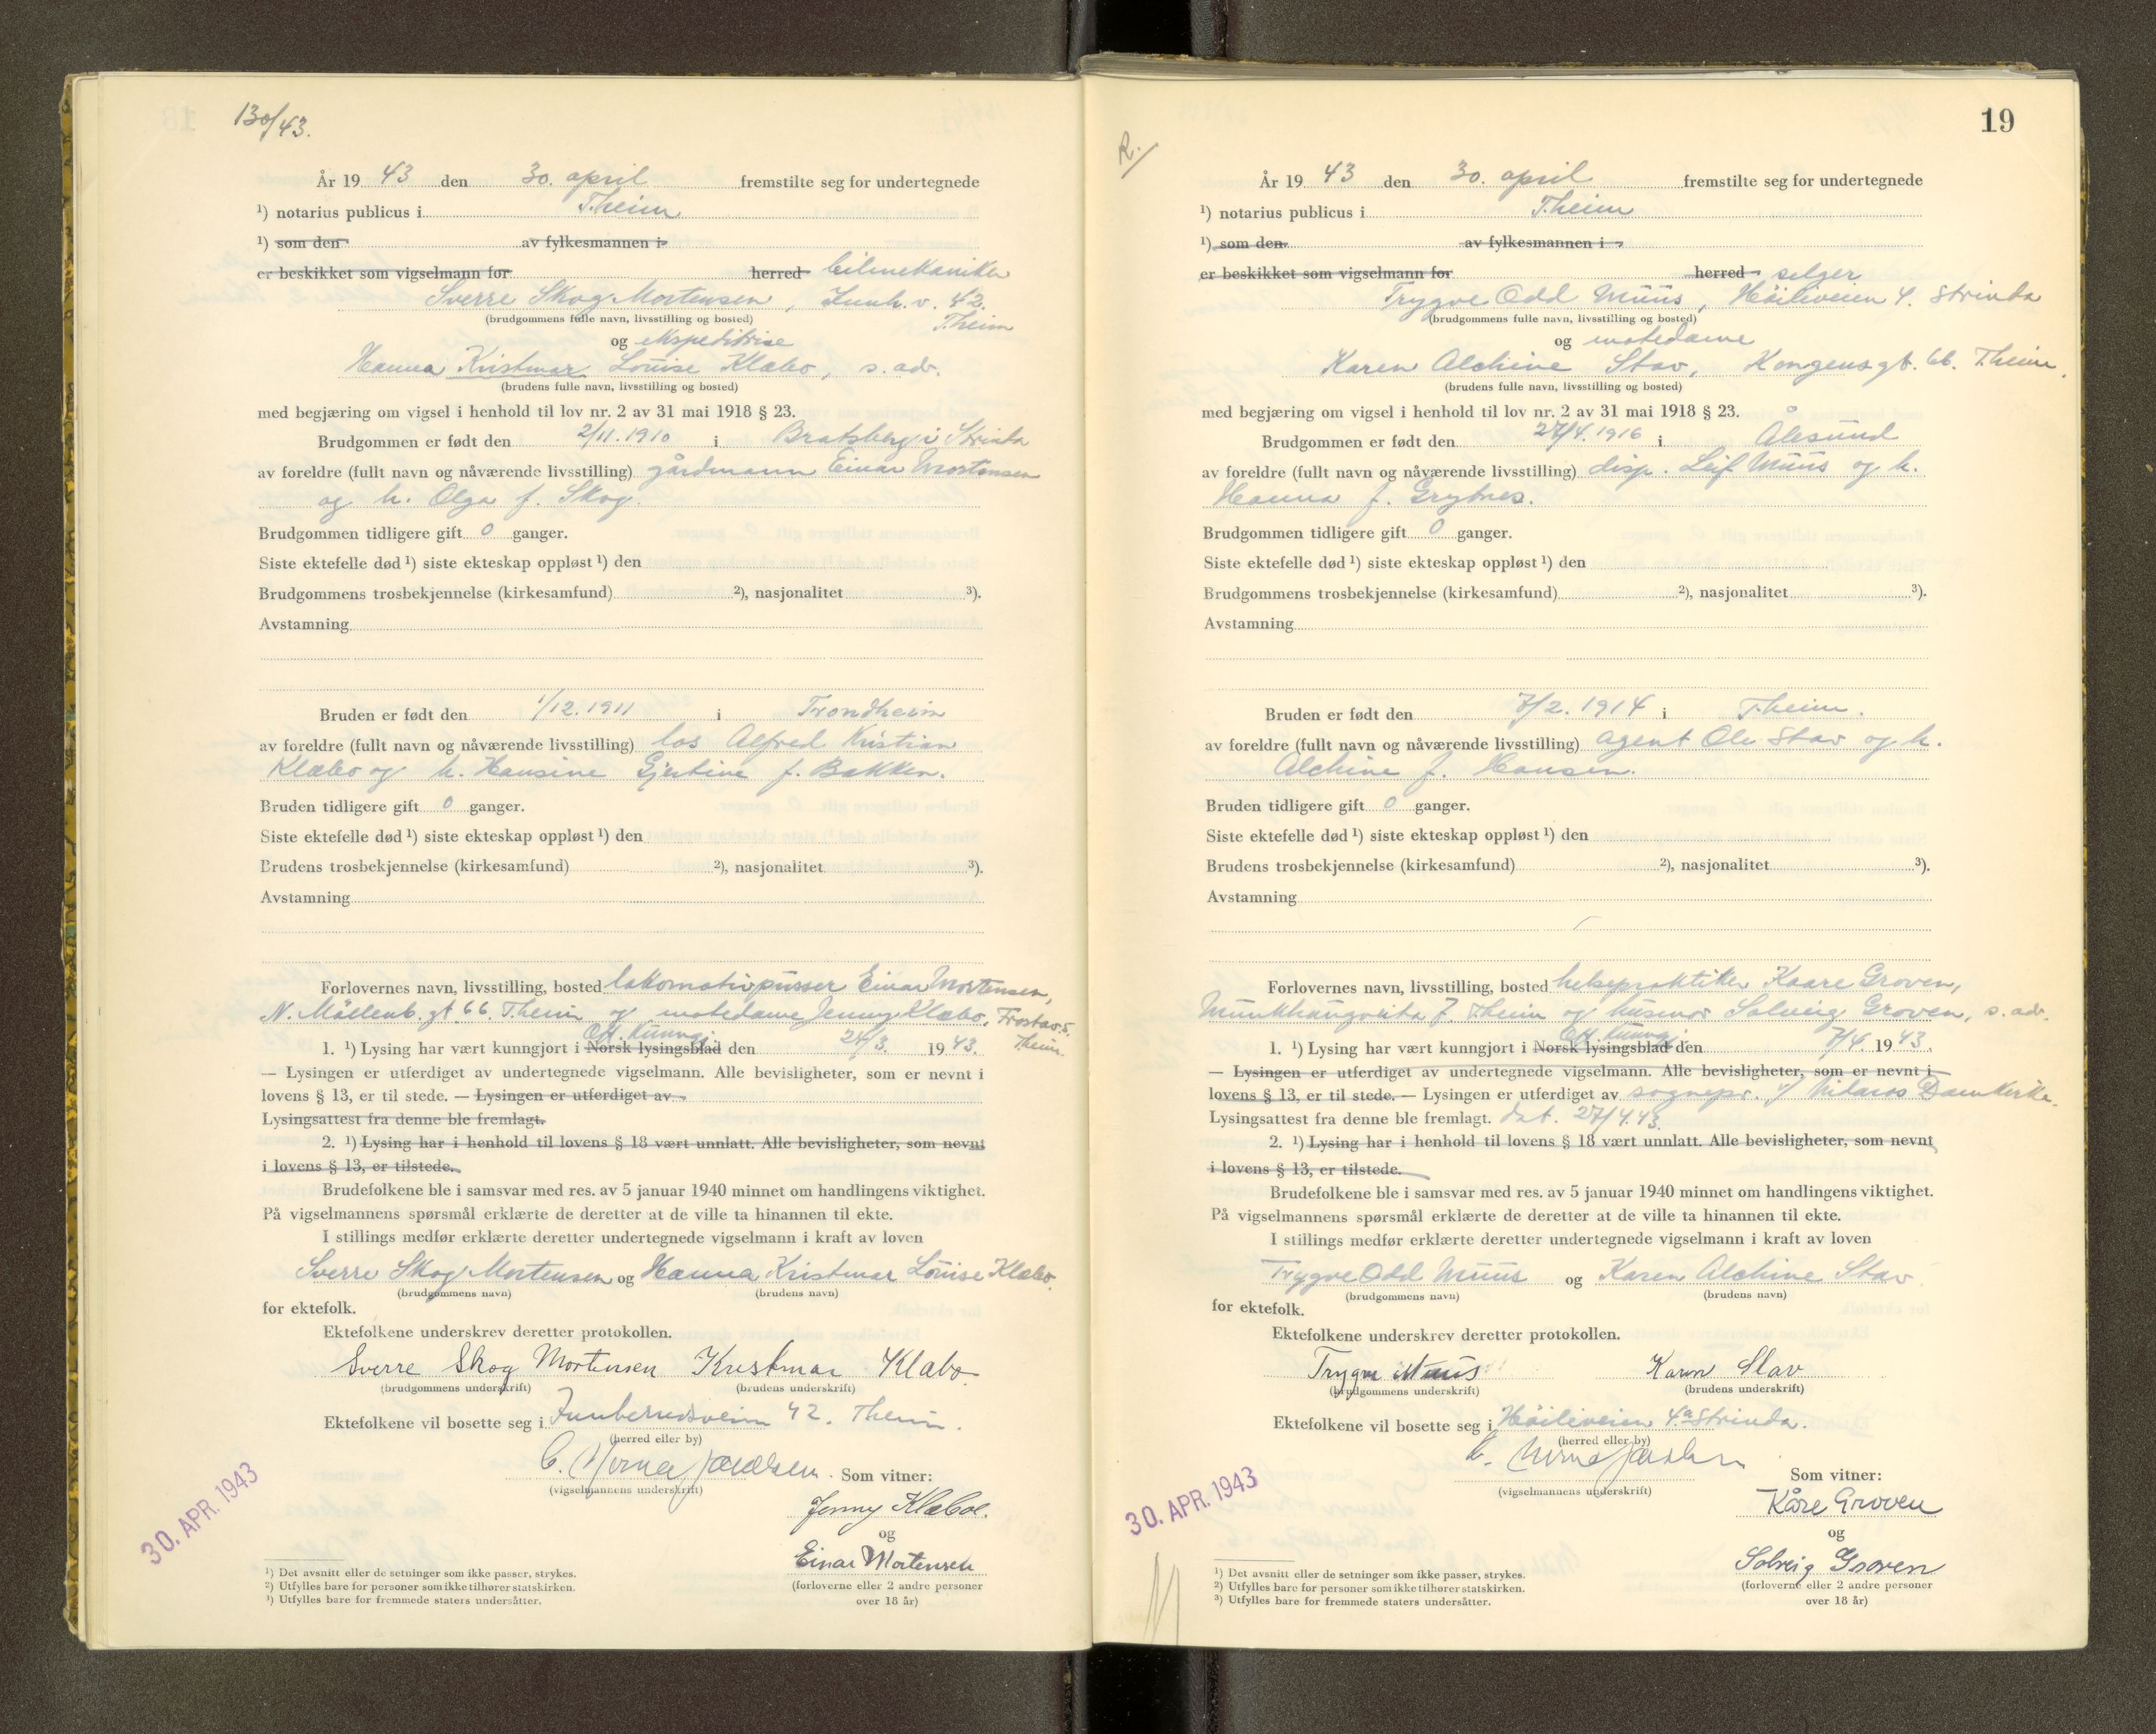 130/43.
År 19 43 den 30. april fremstilte seg for undertegnede
¹) notarius publicus i T.heim
¹) som den av fylkesmannen i
er beskikket som vigselmann for herred bilmekaniker
Sverre Skog Mortensen, Innh. v. 42.
T.heim
(brudgommens fulle navn, livsstilling og bosted)
og ekspeditrise
Hanna Kristmar Louise Klæbo, s. adr.
(brudens fulle navn, livsstilling og bosted)
med begjæring om vigsel i henhold til lov nr. 2 av 31 mai 1918 § 23.
Brudgommen er født den 2/11. 1910 i Bratsberg i Strinda
av foreldre (fullt navn og nåværende livsstilling) gårdmann Einar Mortensen
og h. Olga f. Skog.
Brudgommen tidligere gift 0 ganger.
Siste ektefelle død ¹) siste ekteskap oppløst ¹) den
Brudgommens trosbekjennelse (kirkesamfund) ²), nasjonalitet ³).
Avstamning
Bruden er født den 1/12. 1911 i Trondheim
av foreldre (fullt navn og nåværende livsstilling) los Alfred Kristian
Klæbo og h. Hansine Gjertine f. Bakken.
Bruden tidligere gift 0 ganger.
Siste ektefelle død ¹) siste ekteskap oppløst ¹) den
Brudens trosbekjennelse (kirkesamfund) ²), nasjonalitet ³).
Avstamning
Forlovernes navn, livsstilling, bosted lokomotivpusser Einar Mortensen,
N. Møllenb. gt. 66. T.heim og motedame Jenny Klæbo, Frostav. 5.
T.heim.
Off. kunngj.
1. ¹) Lysing har vært kunngjort i Norsk lysingsblad den 24/3. 19 43.
— Lysingen er utferdiget av undertegnede vigselmann. Alle bevisligheter, som er nevnt i
lovens § 13, er til stede. — Lysingen er utferdiget av
Lysingsattest fra denne ble fremlagt.
2. ¹) Lysing har i henhold til lovens § 18 vært unnlatt. Alle bevisligheter, som nevnt
i lovens § 13, er tilstede.
Brudefolkene ble i samsvar med res. av 5 januar 1940 minnet om handlingens viktighet.
På vigselmannens spørsmål erklærte de deretter at de ville ta hinannen til ekte.
I stillings medfør erklærte deretter undertegnede vigselmann i kraft av loven
Sverre Skog Mortensen og Hanna Kristmar Louise Klæbo.
(brudgommens navn) (brudens navn)
for ektefolk.
Ektefolkene underskrev deretter protokollen.
Sverre Skog Mortensen Kristmar Klæbo
(brudgommens underskrift) (brudens underskrift)
Ektefolkene vil bosette seg i Innherredsveien 42. T.heim.
(herred eller by)
(vigselmannens underskrift) Som vitner:
Jenny Klæboe.
og
Einar Mortensen
(forloverne eller 2 andre personer
over 18 år)
30. APR. 1943
¹) Det avsnitt eller de setninger som ikke passer, strykes.
²) Utfylles bare for personer som ikke tilhører statskirken.
³) Utfylles bare for fremmede staters undersåtter.
19
R./
År 19 43 den 30. april fremstilte seg for undertegnede
¹) notarius publicus i T.heim
¹) som den av fylkesmannen i
er beskikket som vigselmann for herred selger
Trygve Odd Muus, Høiliveien 4. Strinda
(brudgommens fulle navn, livsstilling og bosted)
og motedame
Karen Alchine Stav, Kongensgt. 66. T.heim.
(brudens fulle navn, livsstilling og bosted)
med begjæring om vigsel i henhold til lov nr. 2 av 31 mai 1918 § 23.
Brudgommen er født den 27/4. 1916 i Ålesund
av foreldre (fullt navn og nåværende livsstilling) disp. Leif Muus og h.
Hanna f. Grytnes.
Brudgommen tidligere gift 0 ganger.
Siste ektefelle død ¹) siste ekteskap oppløst ¹) den
Brudgommens trosbekjennelse (kirkesamfund) ²), nasjonalitet ³).
Avstamning
Bruden er født den 7/2. 1914 i T.heim.
av foreldre (fullt navn og nåværende livsstilling) agent Ole Stav og h.
Alchine f. Hansen.
Bruden tidligere gift 0 ganger.
Siste ektefelle død ¹) siste ekteskap oppløst ¹) den
Brudens trosbekjennelse (kirkesamfund) ²), nasjonalitet ³).
Avstamning
Forlovernes navn, livsstilling, bosted helsepraktiker Kaare Groven,
Munkhaugveita 7. T.heim og husmor Solveig Groven, s. adr.
Off. kunngj.
1. ¹) Lysing har vært kunngjort i Norsk lysingsblad den 7/4. 19 43.
— Lysingen er utferdiget av undertegnede vigselmann. Alle bevisligheter, som er nevnt i
lovens § 13, er til stede. — Lysingen er utferdiget av sognepr. v/ Nidaros Domkirke.
Lysingsattest fra denne ble fremlagt. dat. 27/4.43.
2. ¹) Lysing har i henhold til lovens § 18 vært unnlatt. Alle bevisligheter, som nevnt
i lovens § 13, er tilstede.
Brudefolkene ble i samsvar med res. av 5 januar 1940 minnet om handlingens viktighet.
På vigselmannens spørsmål erklærte de deretter at de ville ta hinannen til ekte.
I stillings medfør erklærte deretter undertegnede vigselmann i kraft av loven
Trygve Odd Muus og Karen Alchine Stav
(brudgommens navn) (brudens navn)
for ektefolk.
Ektefolkene underskrev deretter protokollen.
Trygve Muus Karen Stav
(brudgommens underskrift) (brudens underskrift)
Ektefolkene vil bosette seg i Høiliveien 4.a Strinda.
(herred eller by)
(vigselmannens underskrift) Som vitner:
Kåre Groven
og
Solveig Groven
(forloverne eller 2 andre personer
over 18 år)
30. APR. 1943
¹) Det avsnitt eller de setninger som ikke passer, strykes.
²) Utfylles bare for personer som ikke tilhører statskirken.
³) Utfylles bare for fremmede staters undersåtter.